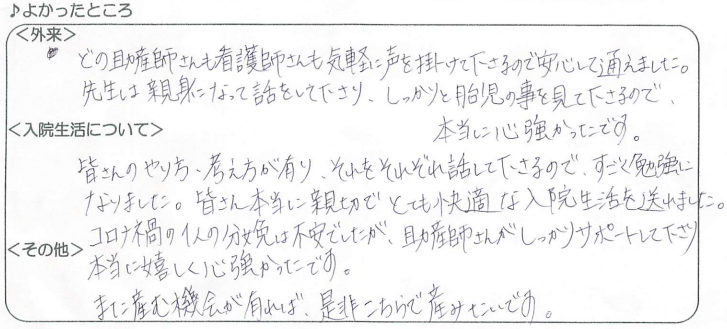 ♪よかったところ
<外来>
どの助産師さんも看護師さんも気軽に声を掛けて下さるので安心して通えました。
先生は親身になって話をして下さり、しっかりと胎児の事を見て下さるので、
本当に心強かったです。
<入院生活について>
皆さんのやり方、考え方が有り、それをそれぞれ話して下さるので、すごく勉強に
なりました。皆さん本当に親切でとても快適な入院生活を送れました。
コロナ禍の1人の分娩は不安でしたが、助産師さんがしっかりサポートして下さり
<その他>
本当に嬉しく心強かったです。
また産む機会が有れば、是非こちらで産みたいです。